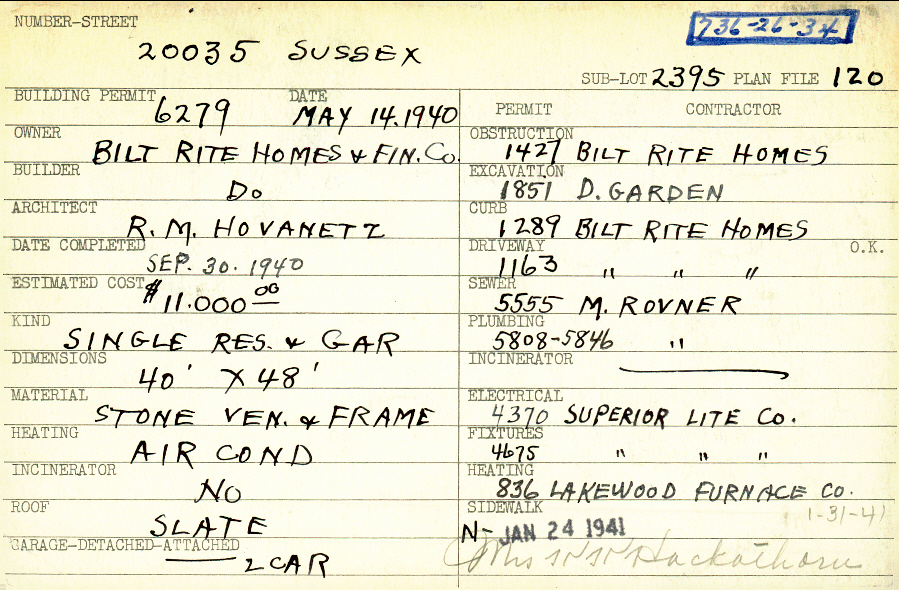 NUMBER-STREET
736-26-34
20035 SUSSEX
SUB-LOT 2395 PLAN FILE 120
BUILDING PERMIT 6279 DATE MAY 14.1940
OWNER BILT RITE HOMES & FIN. Co.
BUILDER Do
ARCHITECT R. M. HOVANETZ
DATE COMPLETED SEP. 30. 1940
ESTIMATED COST $11.000 00
KIND SINGLE RES. & GAR
DIMENSIONS 40' X 48'
MATERIAL STONE VEN. & FRAME
HEATING AIR COND
INCINERATOR NO
ROOF SLATE
GARAGE-DETACHED-ATTACHED 2 CAR
PERMIT CONTRACTOR
OBSTRUCTION 1427 BILT RITE HOMES
EXCAVATION 1851 D. GARDEN
CURB 1289 BILT RITE HOMES
DRIVEWAY 1163 " " " O.K.
SEWER 5555 M. ROVNER
PLUMBING 5808-5846 "
INCINERATOR
ELECTRICAL 4370 SUPERIOR LITE CO.
FIXTURES 4675 " " "
HEATING 836 LAKEWOOD FURNACE CO.
SIDEWALK 1-31-41
N- JAN 24 1941
Mrs Hackathorn